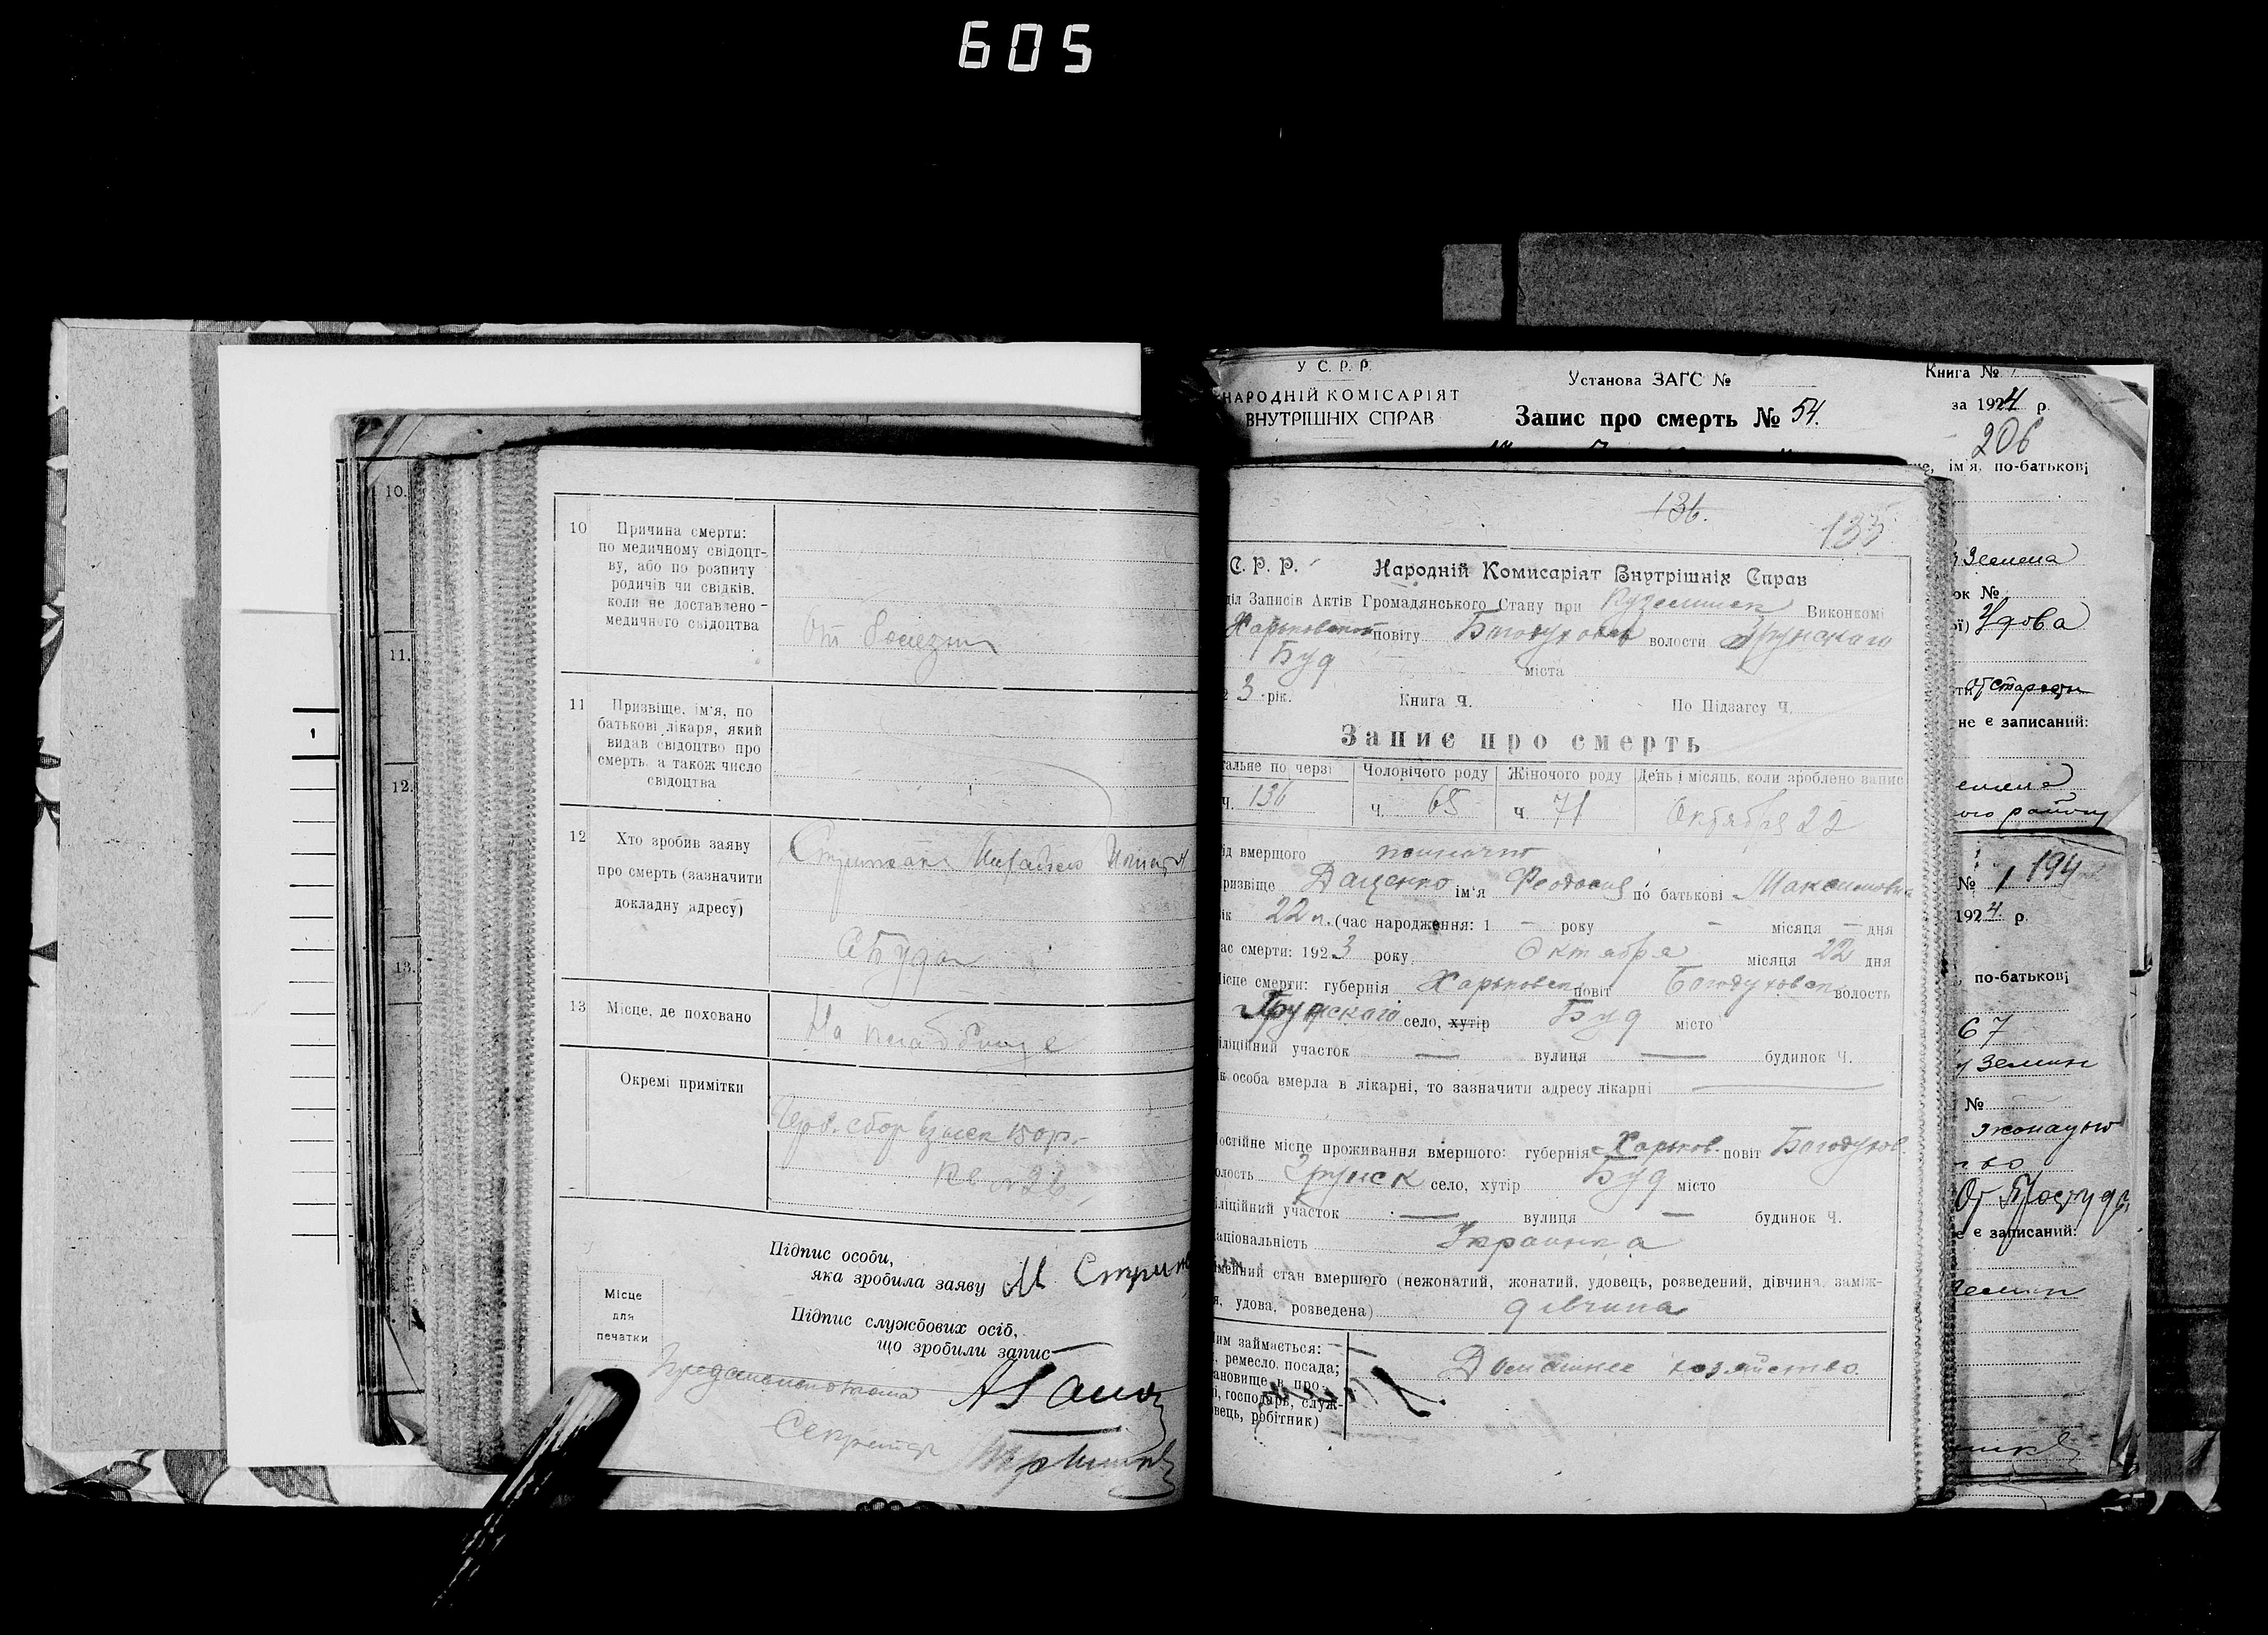 605
10.
11.
12.
13.
10 Причина смерти:
по медичному свідоцт-
ву, або по розпиту
родичів чи свідків,
коли не доставлено
медичного свідоцтва
От болезни
11 Призвіще, ім'я, по
батькові лікаря, який
видав свідоцтво про
смерть, а також число
свідоцтва
12 Хто зробив заяву
про смерть (зазначити
докладну адресу)
13 Місце, де поховано
На кладбище
Окремі примітки
сбор взыск 150 р.
Кв № 26
Підпис особи,
яка зробила заяву М Стриж
Місце
для
печатки
Підпис службових осіб,
що зробили запис
Секретар
У С. Р. Р.
НАРОДНІЙ КОМІСАРІЯТ
ВНУТРІШНІХ СПРАВ
Установа ЗАГС №
Запис про смерть № 54.
Книга №
за 1924 р.
206
136.
135
С. Р. Р. Народній Комисаріят Внутрішніх Справ
діл Записів Актів Громадянського Стану при Виконкомі
Харьковской повіту Богодухов волости
Буд міста
2 3 рік. Книга Ч. По Підзагсу Ч.
Запис про смерть
тальне по черзі Чоловічого роду Жіночого роду День і місяць, коли зроблено запис
Ч. 136 Ч. 65 Ч. 71 Октября 22
ід вмершого
ризвіще Даценко ім'я Феодосия по батькові Максимовна
ік 22 л. (час народження: 1 — року — місяця — дня
ас смерти: 1923 року Октября місяця 22 дня
ісце смерти: губернія Харьковск повіт Богодуховск волость
село, хутір Буд місто
іліційний участок — вулиця — будинок Ч.
к особа вмерла в лікарні, то зазначити адресу лікарні —
остійне місце проживання вмершого: губернія Харьков. повіт Богодухов.
олость село, хутір Буд місто
іліційний участок — вулиця — будинок Ч.
аціональність Украинка
імейний стан вмершого (нежонатий, жонатий, удовець, розведений, дівчина, заміж-
я, удова, розведена) дівчина
им займається:
, ремесло, посада;
ановище в про-
і, господарь, служ-
вець, робітник)
Домашнее хозяйство.
е, ім'я, по-батькові
ок №
Удова
От старости
не є записаний:
ого району
№ 1 194
1924. р.
по-батькові
67
№
е є записаний: